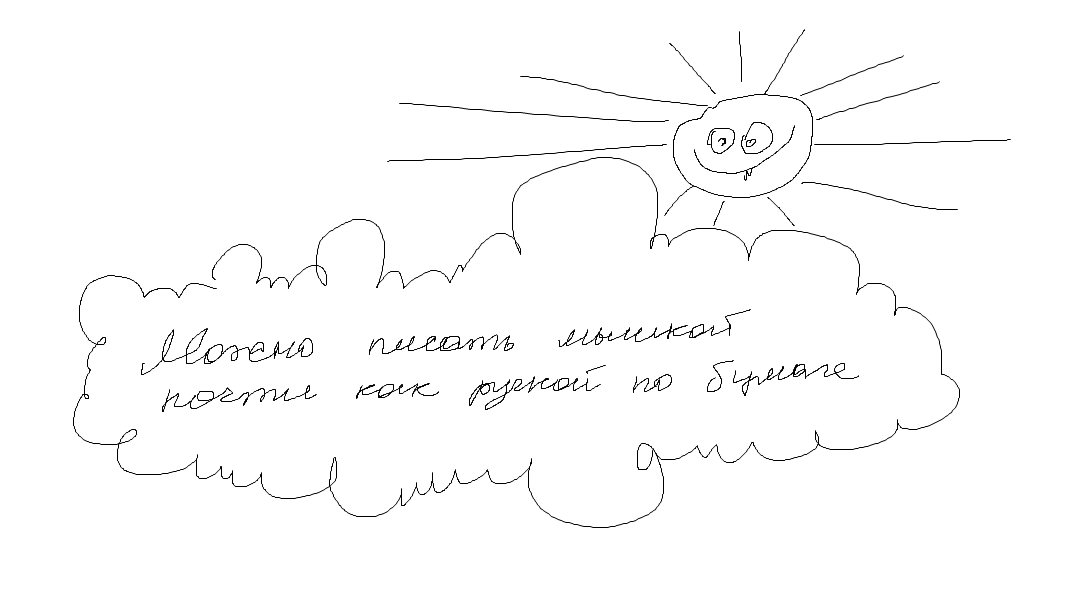 Можно писать мышкой
почти как ручкой по бумаге